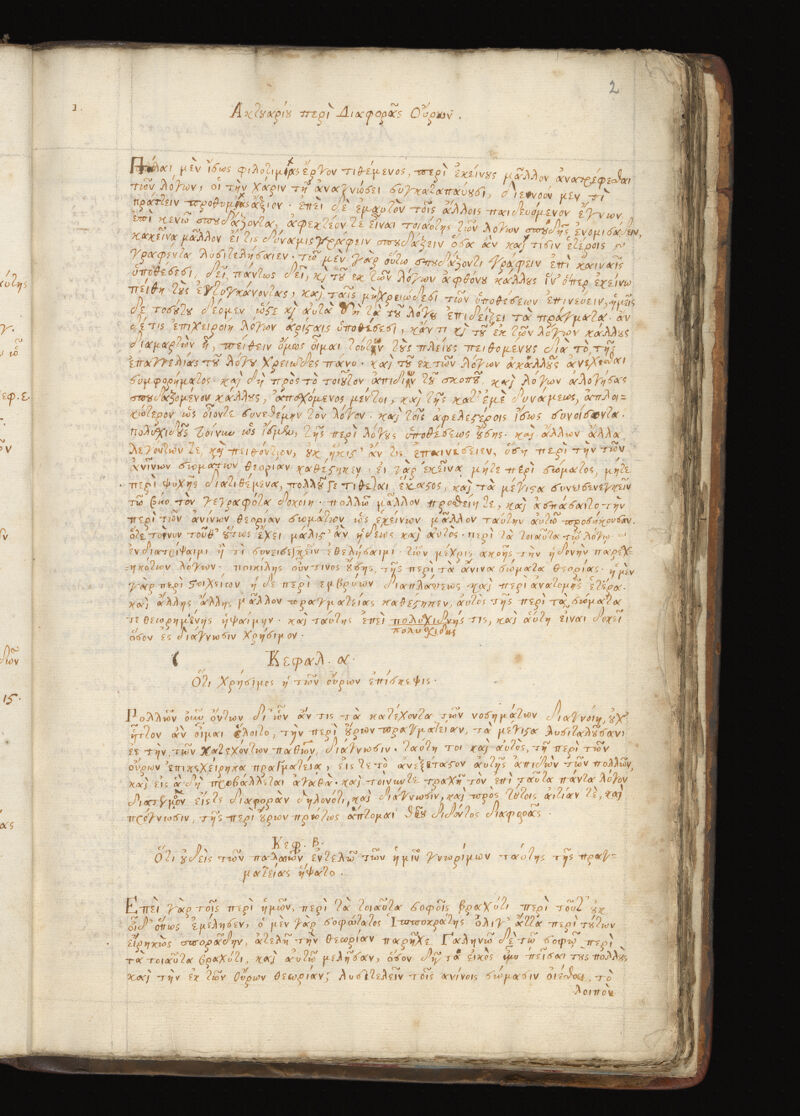 2
1.
Ακτυαρίυ περὶ Διαφορᾶς Οὔρων.
Πάλαι μὲν ἴσως φιλοτιμίας ἔργον τιθέμενος, περὶ ἐκείνυς μᾶλλον
τῶν λόγων, οἱ τὴν χάριν τῇ ἀναγνώσει συγκαταπαύυσι, διενοούν μὲν τι
πράττειν προθυμίας ἄξιον· ἐπεὶ δὲ ἐμαυτὸν τοῖς ἄλλοις παιδευόμενον ἔγνων
ἐπὶ κενῶ σπυδάζοντα, ἀφεκτέον τε εἶναι τοιαύτης τῶν λόγων σπυδῆς ἐνόμισα
κακεῖνα μᾶλλον εἴ τις δύναμις γράφειν σπυδάζειν ὅσα ἂν καί τισιν ἑτέροις
γραφέντα λυσιτελήσαιεν· τῶ μὲν γὰρ ὅυτω σπυδάζοντι γράφειν ἐπὶ καιναῖς
ὑποθέσεσι, δεῖ παντως δεῖ, κὶ τῦ ἐκ τῶν λόγων ἀφθόνυ κάλλυς ἵν' ὅπερ ἐκείνω
πείθη τὺς ἐντυγχάνοντας, καὶ ταῖς μὴ χρειώδεσι τῶν ὑποθέσεων ἐπινεύειν, ἡμεῖς
δὲ τοσύτυ δέομεν ὥστε κὶ αὐτὰ τὰ τῦ λόγυ ἐπιδείξει τὰ πράγματα· ἂν
δέ τις ἐπιχειροίη λόγων ἀρίσταις ὑποθέσεσι, κάν τι κὶ τῦ ἐκ τῶν λόγων κάλλυς
διαμαρτὼν ᾖ, πείθειν ὅμως οἶμαι τὺς πλείυς πειθομένυς διὰ τὸ τῆς
ἐπαγγελίας τῦ λόγυ χρειῶδες πάνυ· καὶ τῦ ἐκ τῶν λόγων ἀκάλλυς ἀνέχεσθαι
συμφορήματος· καὶ δὴ πρὸς τὸ τοιῦτον ἀπιδὼν τῦ σκοπῦ, καὶ λόγων ἀλογήσας
σπυδαζομένον κάλλυς, ἀπεχόμενος μέντοι, καὶ τῆς κατ' ἐμὲ δυνάμεως, ἁπλοι-
κώτερον ὡς οἷοντε συνεθέμην τὸν λόγον· καὶ τοῖς ἀφελεστέροις ἴσως συνοίσοντα·
πολυχιδῦς τοίνυν ὡς ἴσμεν, τῆς περὶ λόγυς ὑποθέσεως ὔσης· καὶ ἄλλων ἄλλα
λεγόντων τε, καὶ πειθόντων, ὐκ ἥκιστ' ἄν τις ἐπαινέσειεν, ὅση περὶ τὴν τῶν
ἀνίνων σωμάτων θεορίαν καθέστηκεν· εἰ γὰρ ἐκεῖνα μήτε περὶ σώματος, μήτε
περὶ ψυχῆς διατιθέμενα, πολλῦ γε τίθεται ἕκαστος, καὶ τὰ μέγιστα συνεισενεγκεῖν
τῶ βίω τὸν γεγραφότα δοκοίη· πολλῶ μᾶλλον πρόθειητε, καὶ ἀσπάσαιτο τὴν
περὶ τῶν ἀνίνων θεορίαν σωμάτων ὡς ἐκείνων μᾶλλον ταύτην αὐτῶ προσήκυσαν·
ὅτε τοίνυν τῦθ' ὕτως ἔχει μάλιστ' ἂν ἡδέως καὶ αὐτὸς· περὶ τὰ τοιαῦτα τῶ λόγω
ἐνδιατρίψαιμι ἤ τι συνεισενεγκεῖν ἐθελήσαιμι τῶν μέχρις ἀκοῆς τὴν ἡδονὴν παρεχ-
ηκότων λόγων· ποικίλης οὖν τινος ὔσης, τῆς περὶ τὰ ἄνινα σώματα θεορίας· ἡ μὲν
γὰρ περὶ στοιχείων, ἡ δὲ περὶ ἐμβρύων διαπλάσεως· καὶ περὶ ἀνατομῆς ἑτέρα·
καὶ ἄλλης ἄλλη μᾶλλον πραγματείας καθέστηκεν, αὐτὸς τῆς περὶ τὰ σώματα
τεθεορημένης ἡψάμην· καὶ ταύτης ἐπεὶ πολυχιδής τις, καὶ αὕτη εἶναι δοκεῖ
πολυχιδὴς
ὅσον ἐς διάγνωσιν χρήσιμον·
Κεφαλ. α.
Ὅτι Χρήσιμος ἡ τῶν οὔρων ἐπίσκεψις·
Πολλῶν ὄντων δι' ὧν ἄν τις τὰ κατέχοντα τῶν νοσημάτων διαγνοίη, ὐχ
ἧττον ἂν οἶμαι ἕλοιτο, τὴν περὶ ὔρων πραγματείαν, τὰ μέγιστα λυσιτελῦσαν
ἐς τὴν τῶν κατεχόντων παθῶν διάγνωσιν· ταύτη τοι καὶ αὐτὸς, τῇ περὶ τῶν
οὔρων ἐπικεχείρηκα πραγματεία, εἴς τε τὸ ἀνεξέταστον αὐτῆς ἀπιδὼν τῶν πολλῶν,
καὶ εἰς ἃ δὴ προβάλλεται ἀγαθὰ· καὶ τοίνυν τετραχῆ τὸν ἐπὶ ταῦτα πάντα λόγον
διατεμὼν εἴς τε διαφορὰν δηλονότι, καὶ διάγνωσιν, καὶ πρὸς τύτοις αἰτίαν τὲ, καὶ
πρόγνωσιν, τῆς περὶ ὔρων πρώτως ἅπτομαι θεῦ διδόντος διαφορᾶς·
Κεφ. β.
Ὅτι ὐδεὶς τῶν παλαιῶν ἐντελῶ τῶν ἡμῖν γνωρίμων ταύτης τῆς πραγ-
ματείας ἥψατο·
Ἐπεὶ γὰρ τοῖς περὶ ἡμῶν, περὶ τὰ τοιαῦτα σοφοῖς βραχύτι περὶ τύτ' ὐκ
οἶδ' ὅπως ἐμέλησεν, ὁ μὲν γὰρ σοφώτατος Ἱπποκράτης ὀλίγ' ἄττα περὶ τύτων
εἰρηκὼς σποράδην, ἀτελῆ τὴν θεωρίαν παρῆκε· Γαληνῶ δὲ τῶ σοφῶ περὶ
τὰ τοιαῦτα βραχύτι, καὶ αὐτῶ μελῆσαν, ὅσον δὴ τὰ εἰκὸς πεῖσαι τὺς πολλὺς
καὶ τὴν ἐκ τῶν Οὔρων θεωρίαν, λυσιτελεῖν τοῖς ἀνίνοις σώμασιν οἴεσθαι, τὸ
λοιπὸν